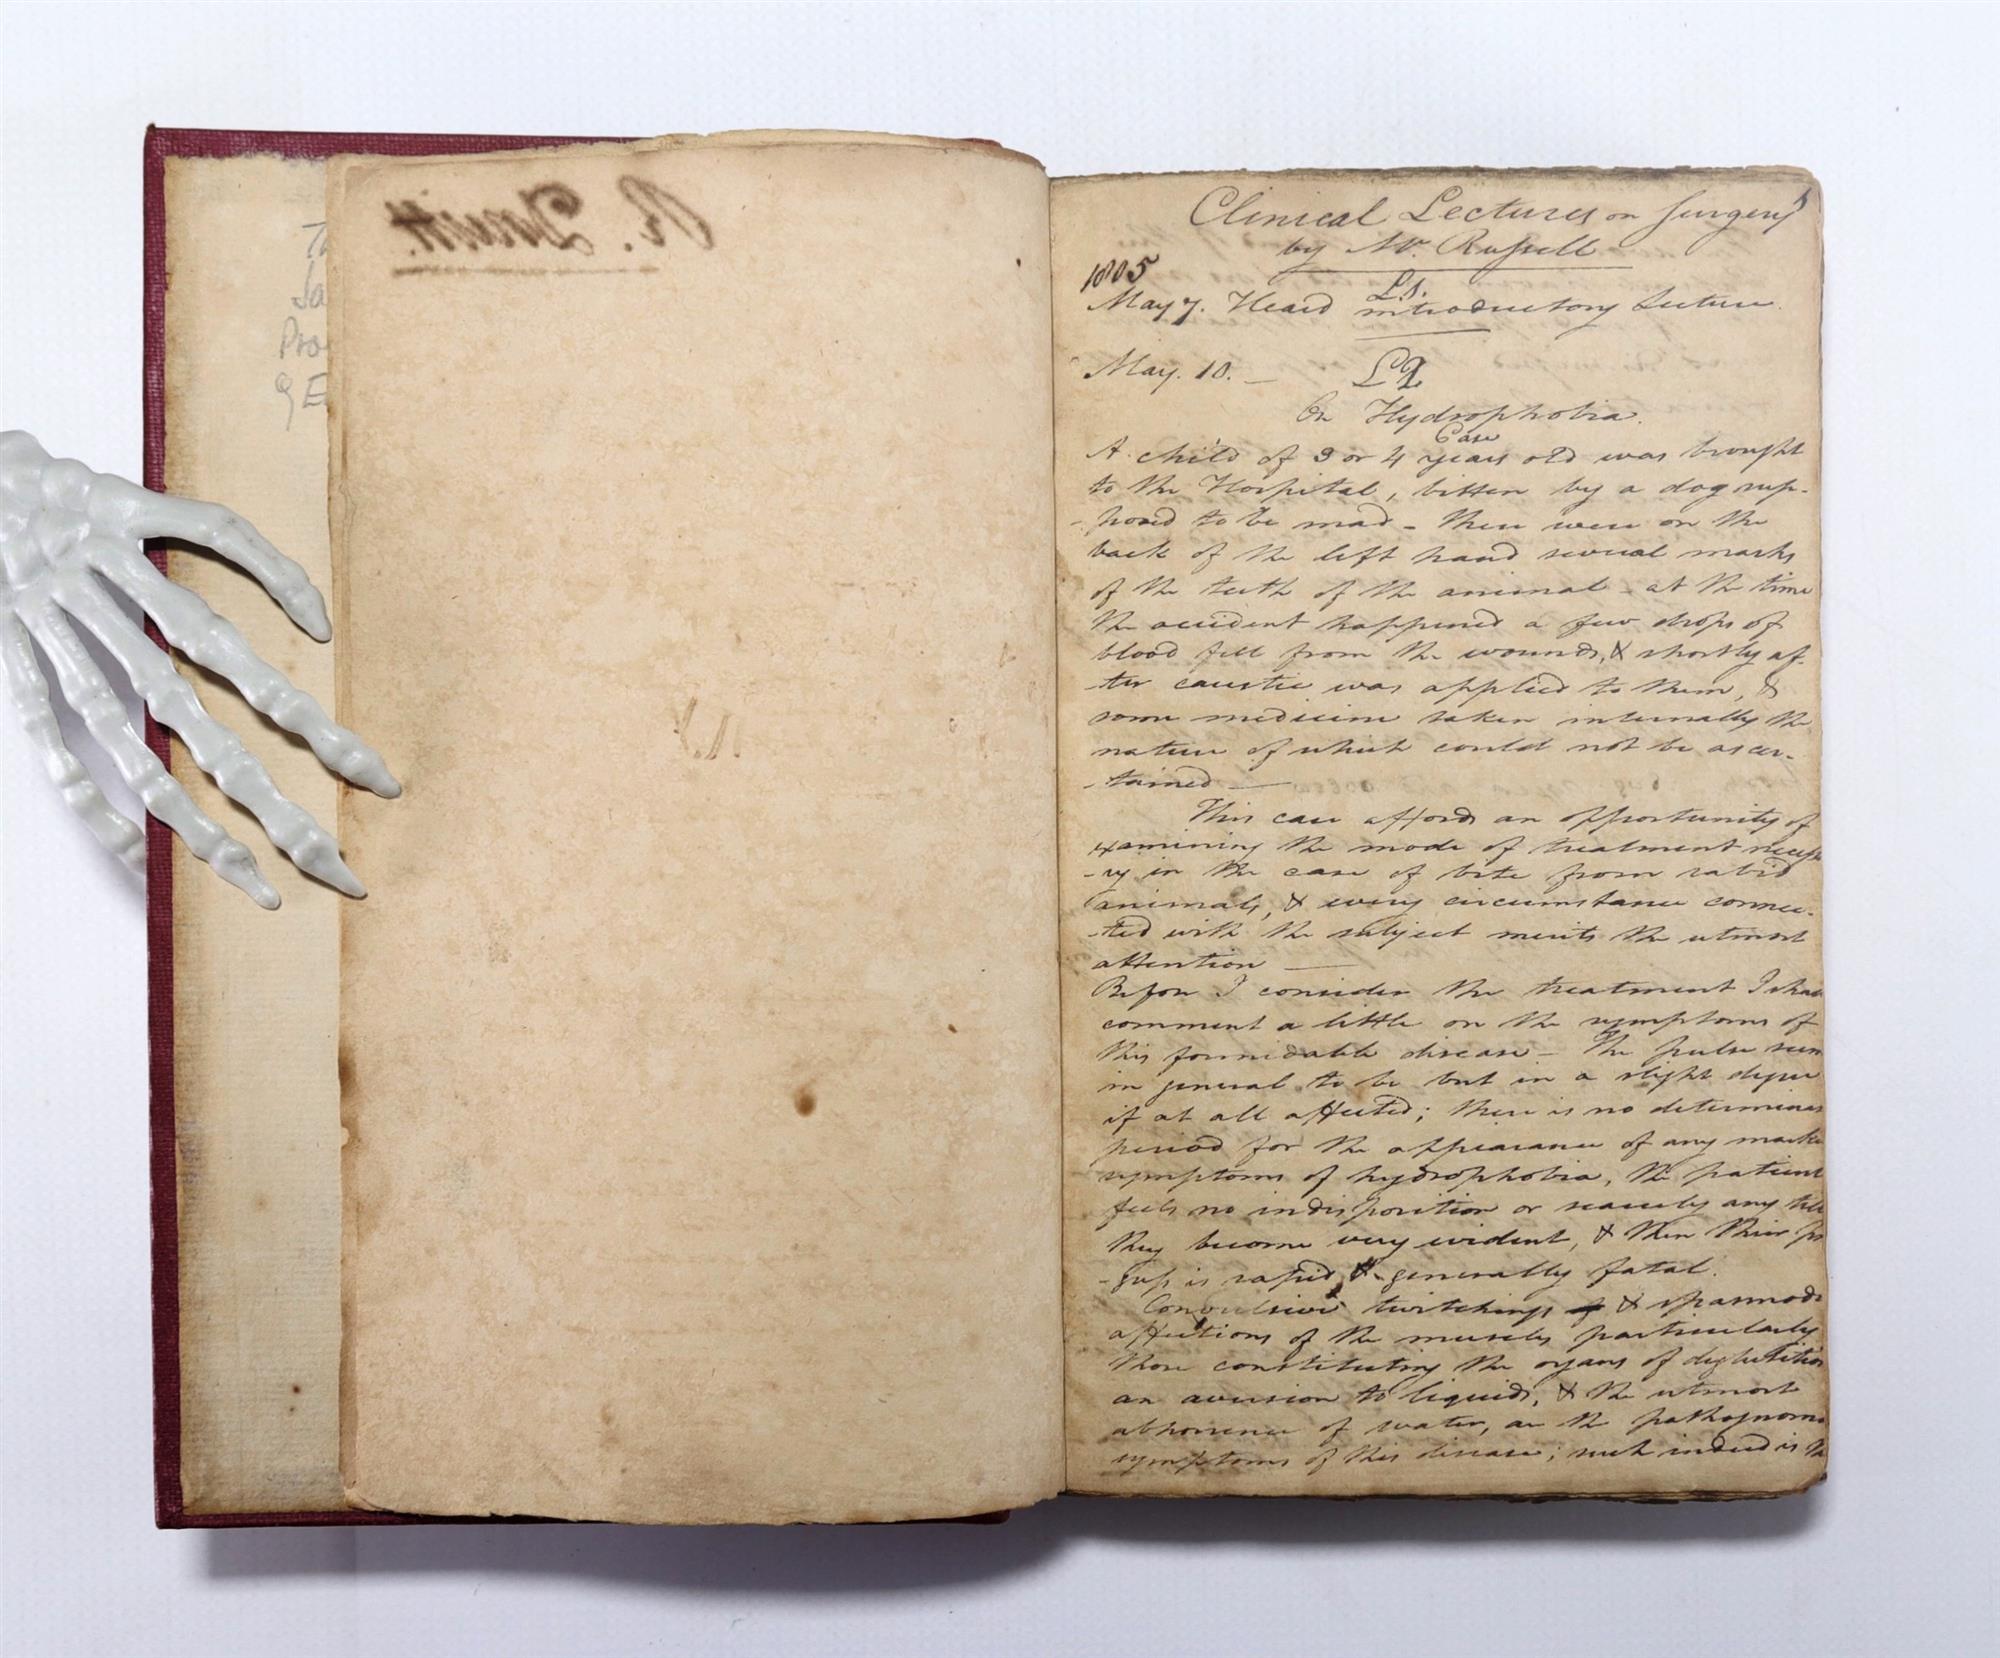 R. Druitt
Th
Ja
Pro
g E
Clinical Lectures on Surgery
by Mr. Russell
1805
L1.
May 7. Heard introductory Lecture.
May. 10. — L2
On Hydrophobia.
Case
A child of 3 or 4 years old was brought
to the Hospital, bitten by a dog sup-
-posed to be mad - there were on the
back of the left hand several marks
of the teeth of the animal - at the time
the accident happened a few drops of
blood fell from the wounds, & shortly af-
-ter caustic was applied to them, &
some medicine taken internally the
nature of which could not be ascer-
-tained —
This case affords an opportunity of
examining the mode of treatment necessa
-ry in the case of bite from rabid
animals, & every circumstance connec-
-ted with the subject merits the utmost
attention —
Before I consider the treatment I shall
comment a little on the symptoms of
this formidable disease - The pulse seem
in general to be but in a slight degree
if at all affected; there is no determinat
period for the appearance of any marke
symptoms of hydrophobia, the patient
feels no indisposition or scarcely any till
they become very evident, & then their pro
-gress is rapid & generally fatal.
Convulsive twitchings & spasmodic
affections of the muscles particularly
those constituting the organs of deglutition
an aversion to liquids, & the utmost
abhorrence of water, are the pathognomo
symptoms of this disease; such indeed is the